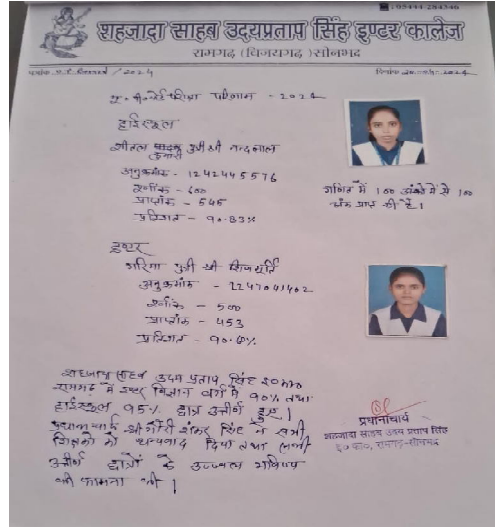 05444-284346
शहजादा साहब उदयप्रताप सिंह इण्टर कालेज
रामगढ़ (विजयगढ़) सोनभद्र
पत्रांक /2024
दिनांक 20-04-2024
यू. पी. बोर्ड परीक्षा परिणाम - 2024
हाईस्कूल
शीतल कुमारी पुत्री श्री नन्दलाल
अनुक्रमांक - 1242445576
पूर्णांक - 600
प्राप्तांक - 545
प्रतिशत - 90.83%
गणित में 100 अंकों में से 100
अंक प्राप्त की है।
इण्टर
गरिमा पुत्री श्री शिवमूर्ति
अनुक्रमांक - 2247041402
पूर्णांक - 500
प्राप्तांक - 453
प्रतिशत - 90.60%
शहजादा साहब उदय प्रताप सिंह इ०का०
रामगढ़ में इण्टर विज्ञान वर्ग में 90% तथा
हाईस्कूल 95% छात्र उत्तीर्ण हुए।
प्रधानाचार्य श्री गौरी शंकर सिंह ने सभी
शिक्षकों को धन्यवाद दिया तथा सभी
उत्तीर्ण छात्रों के उज्ज्वल भविष्य
की कामना की।
प्रधानाचार्य
शहजादा साहब उदय प्रताप सिंह
इ० का०, रामगढ़-सोनभद्र